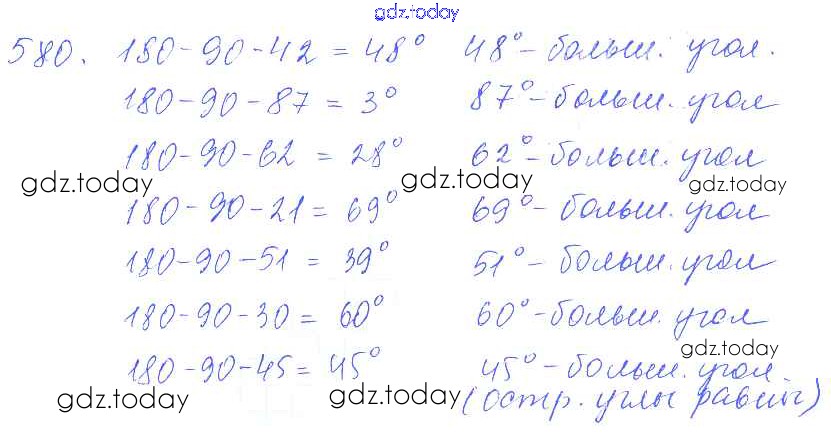 gdz.today
580. 180-90-42 = 48° 48° - больш. угол.
180-90-87 = 3° 87° - больш. угол
180-90-62 = 28° 62° - больш. угол
gdz.today gdz.today gdz.today
180-90-21 = 69° 69° - больш. угол
180-90-51 = 39° 51° - больш. угол
180-90-30 = 60° 60° - больш. угол
gdz.today
180-90-45 = 45° 45° - больш. угол.
gdz.today gdz.today (остр. углы равны)